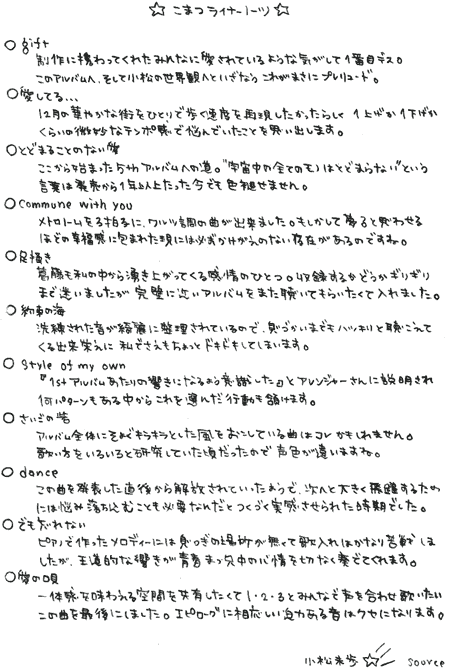 ☆ こまつライナーノーツ ☆
○ gift
制作に携わってくれたみんなに愛されているような気がして1番目デス。
このアルバムへ、そして小松の世界観へといざなう これがまさにプレリュード。
○愛してる…
12月の華やかな街をひとりで歩く速度を再現したかったらしく 1上げか1下げか
くらいの微妙なテンポ感で悩んでいたことを思い出します。
○とどまることのない愛
ここから始まった5thアルバムへの道。"宇宙中の全てのモノはとどまらない"という
言葉は発売から1年以上たった今でも色褪せません。
○commune with you
メトロノームを3拍子に、ワルツ調の曲が出来ました。もしかして夢?と思わせる
ほどの幸福感に包まれた現には必ずかけがえのない存在があるのですね。
○足掻き
葛藤も私の中から湧き上がってくる感情のひとつ。収録するかどうかギリギリ
まで迷いましたが 完璧に近いアルバムをまた聴いてもらいたくて入れました。
○約束の海
洗練された音が綺麗に整理されているので、息づかいまでもハッキリと聴こえて
くる出来栄えに 私でさえもちょっとドキドキしてしまいます。
○ style of my own
『1stアルバムあたりの響きになるよう意識した』とアレンジャーさんに説明され
何パターンもある中からこれを選んだ行動も頷けます。
○さいごの砦
アルバム全体にそよぐキラキラとした風をおこしている曲はコレかもしれません。
歌い方をいろいろと研究していた頃だったので 声色が違いますね。
○ dance
この曲を発表した直後から解放されていったようで、次へと大きく飛躍するため
には悩み落ち込むことも必要なんだとつくづく実感させられた時期でした。
○でも忘れない
ピアノで作ったメロディーには息つぎの場所が無くて歌入れはかなり苦戦しま
したが、王道的な響きが青春まっ只中の心情を切なく奏でてくれます。
○愛の唄
一体感を味わえる空間を共有したくて 1・2・3とみんなで声を合わせ歌いたい
この曲を最後にしました。エピローグに相応しい迫力ある音はクセになります。
小松未歩 ☆ source